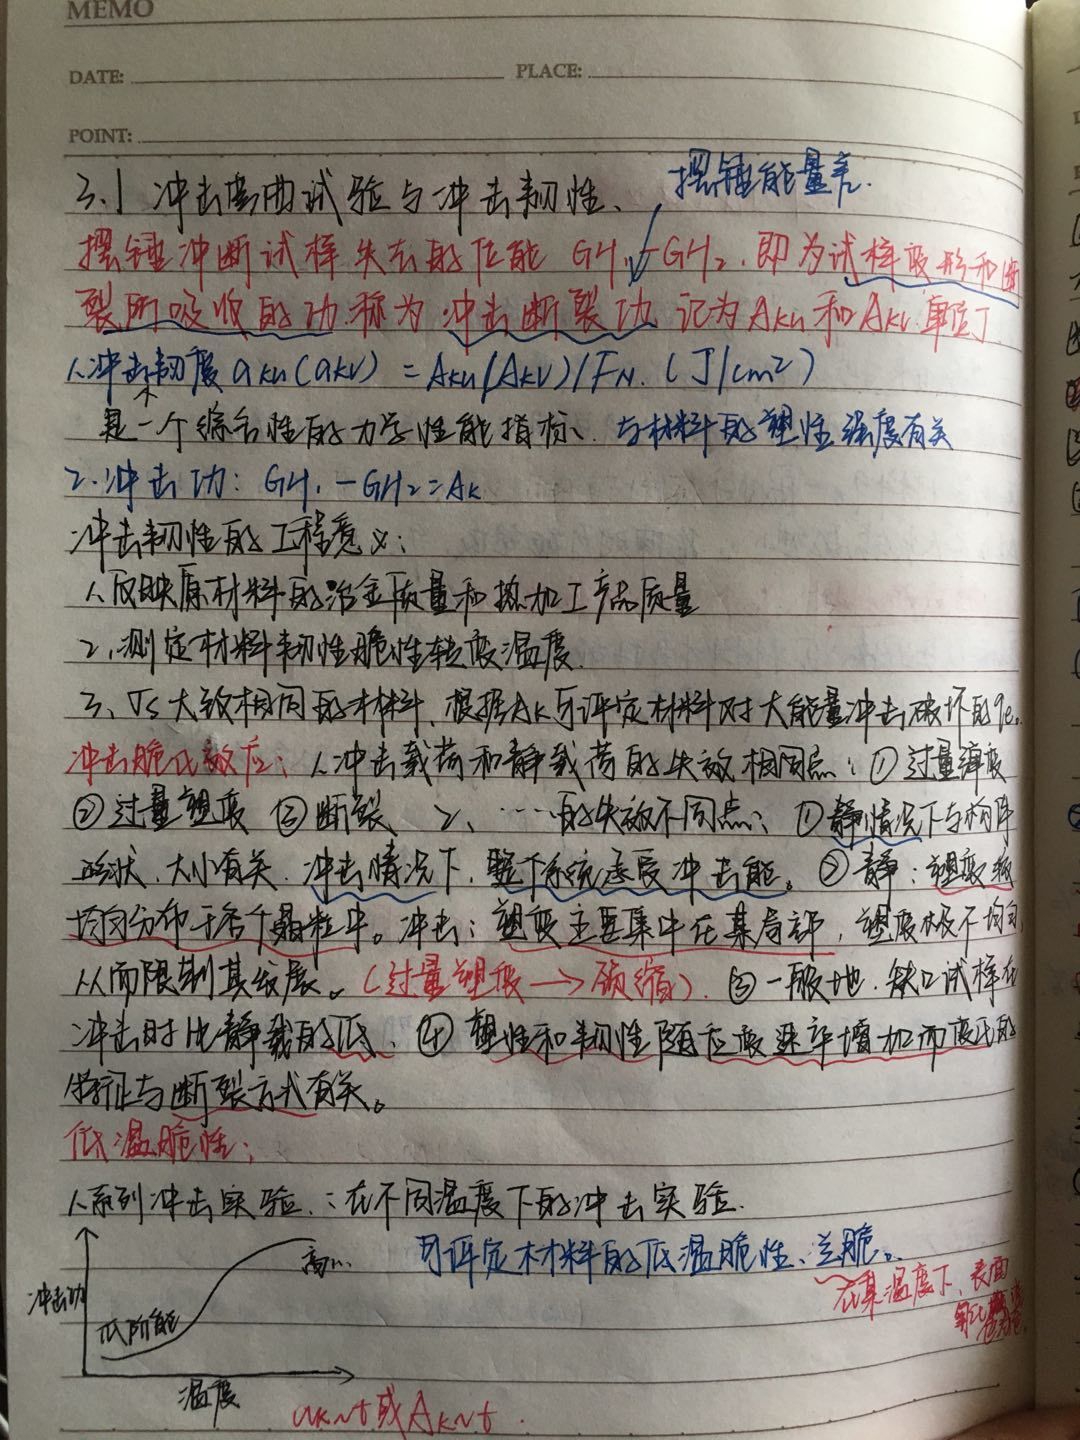 MEMO
DATE:
PLACE:
POINT:
摆锤能量差.
3.1 冲击弯曲试验与冲击韧性、
摆锤冲断试样失去的位能 GH₁-GH₂. 即为试样变形和断
裂所吸收的功.称为 冲击断裂功 记为AKU和AKV.单位J
1.冲击韧度 aKU(aKV) = AKU(AKV)/FN. (J/cm²)
是一个综合性的力学性能指标、与材料的塑性强度有关
2.冲击功: GH₁-GH₂=AK
冲击韧性的工程意义:
1.反映原材料的冶金质量和热加工产品质量
2.测定材料韧性脆性转变温度.
3、σs大致相同的材料、根据AK可评定材料对大能量冲击破坏的
冲击脆化效应: 1.冲击载荷和静载荷的失效相同点: ① 过量弹变
② 过量塑变 ③ 断裂、2、……的失效不同点: ①静情况下与构件
形状、大小有关. 冲击情况下, 整个系统承受冲击能。②静: 塑变较
均匀分布于各个晶粒中。冲击: 塑变主要集中在某局部, 塑变极不均匀,
从而限制其发展。(过量塑变→颈缩). ③一般地.缺口试样在
冲击时比静载的低、④ 塑性和韧性随应变速率增加而变化的
特征与断裂方式有关。
低温脆性:
1.系列冲击实验.:在不同温度下的冲击实验.
可评定材料的低温脆性、兰脆。
在某温度下、表面
高…
冲击功
低阶能
温度
aKVt或AKVt.